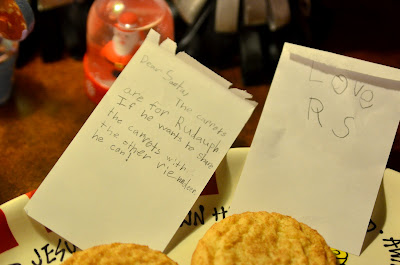 Dear Santa, The carrots
are for Rudauph
If he wants to share
the carrots with
the other
he can!
Love,
RS
JESU